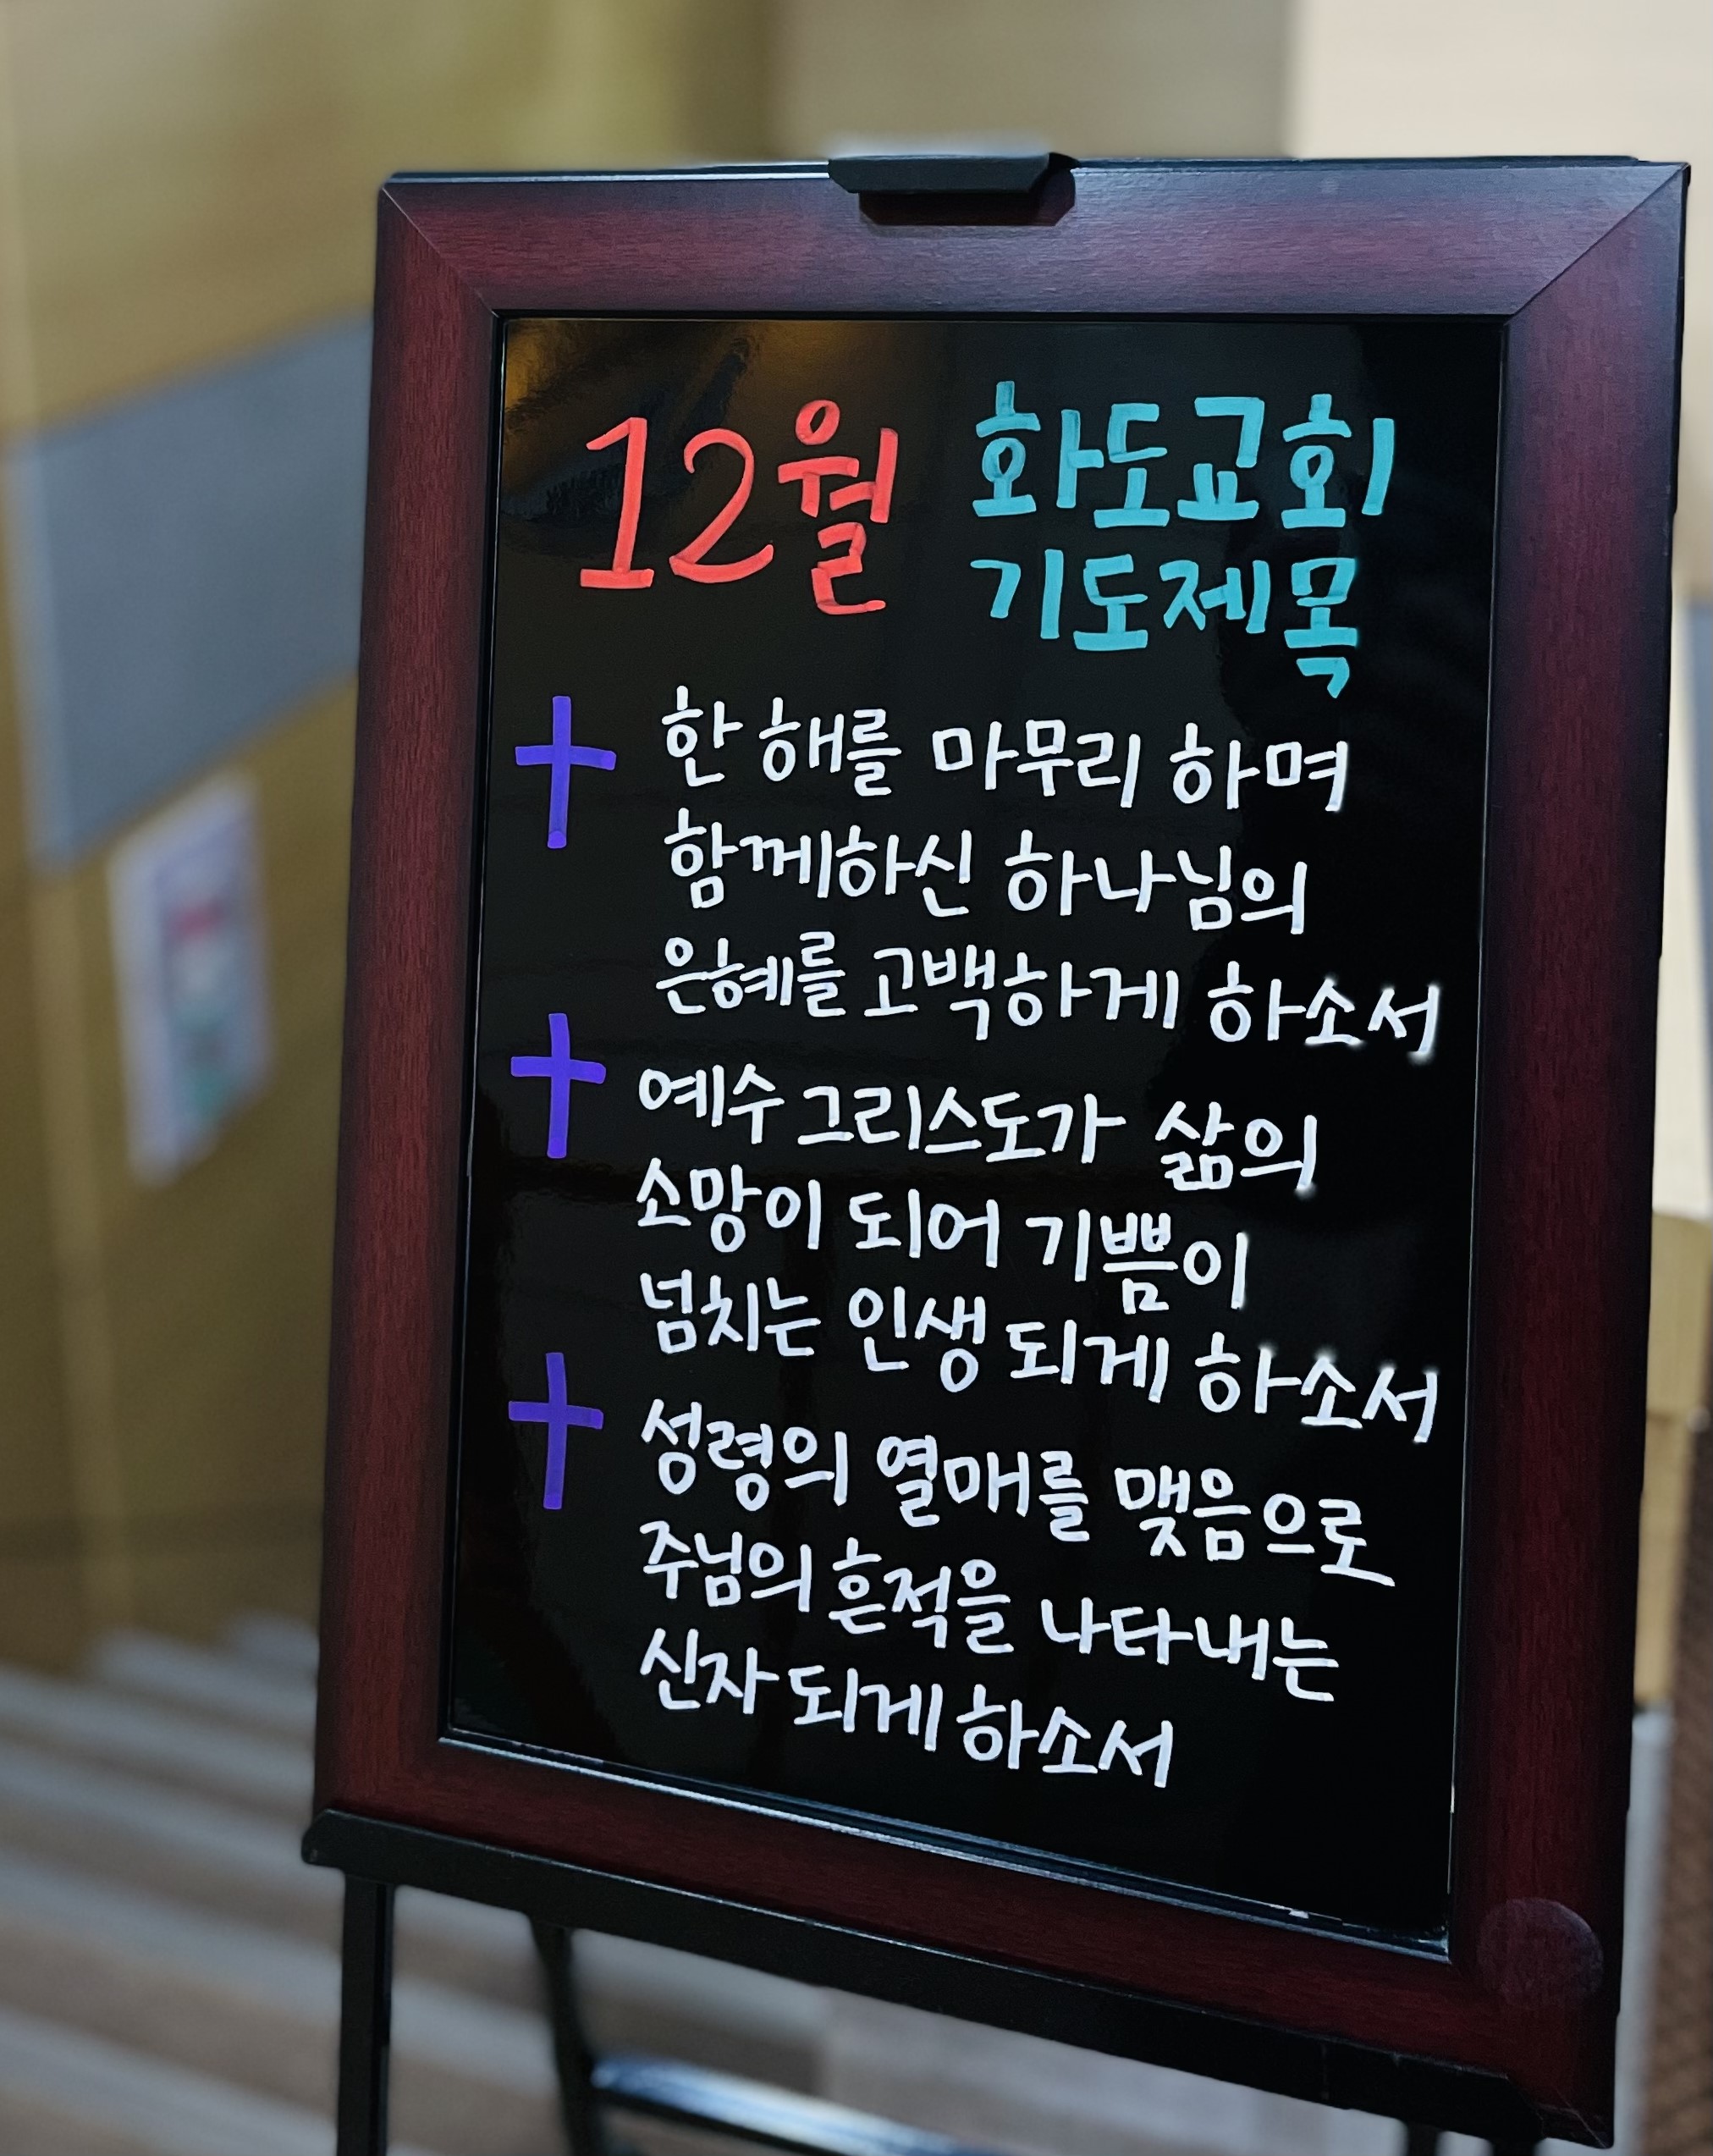 12월 화도교회
기도제목
한 해를 마무리 하며
함께하신 하나님의
은혜를 고백하게 하소서
예수 그리스도가 삶의
소망이 되어 기쁨이
넘치는 인생 되게 하소서
성령의 열매를 맺음으로
주님의 흔적을 나타내는
신자 되게 하소서